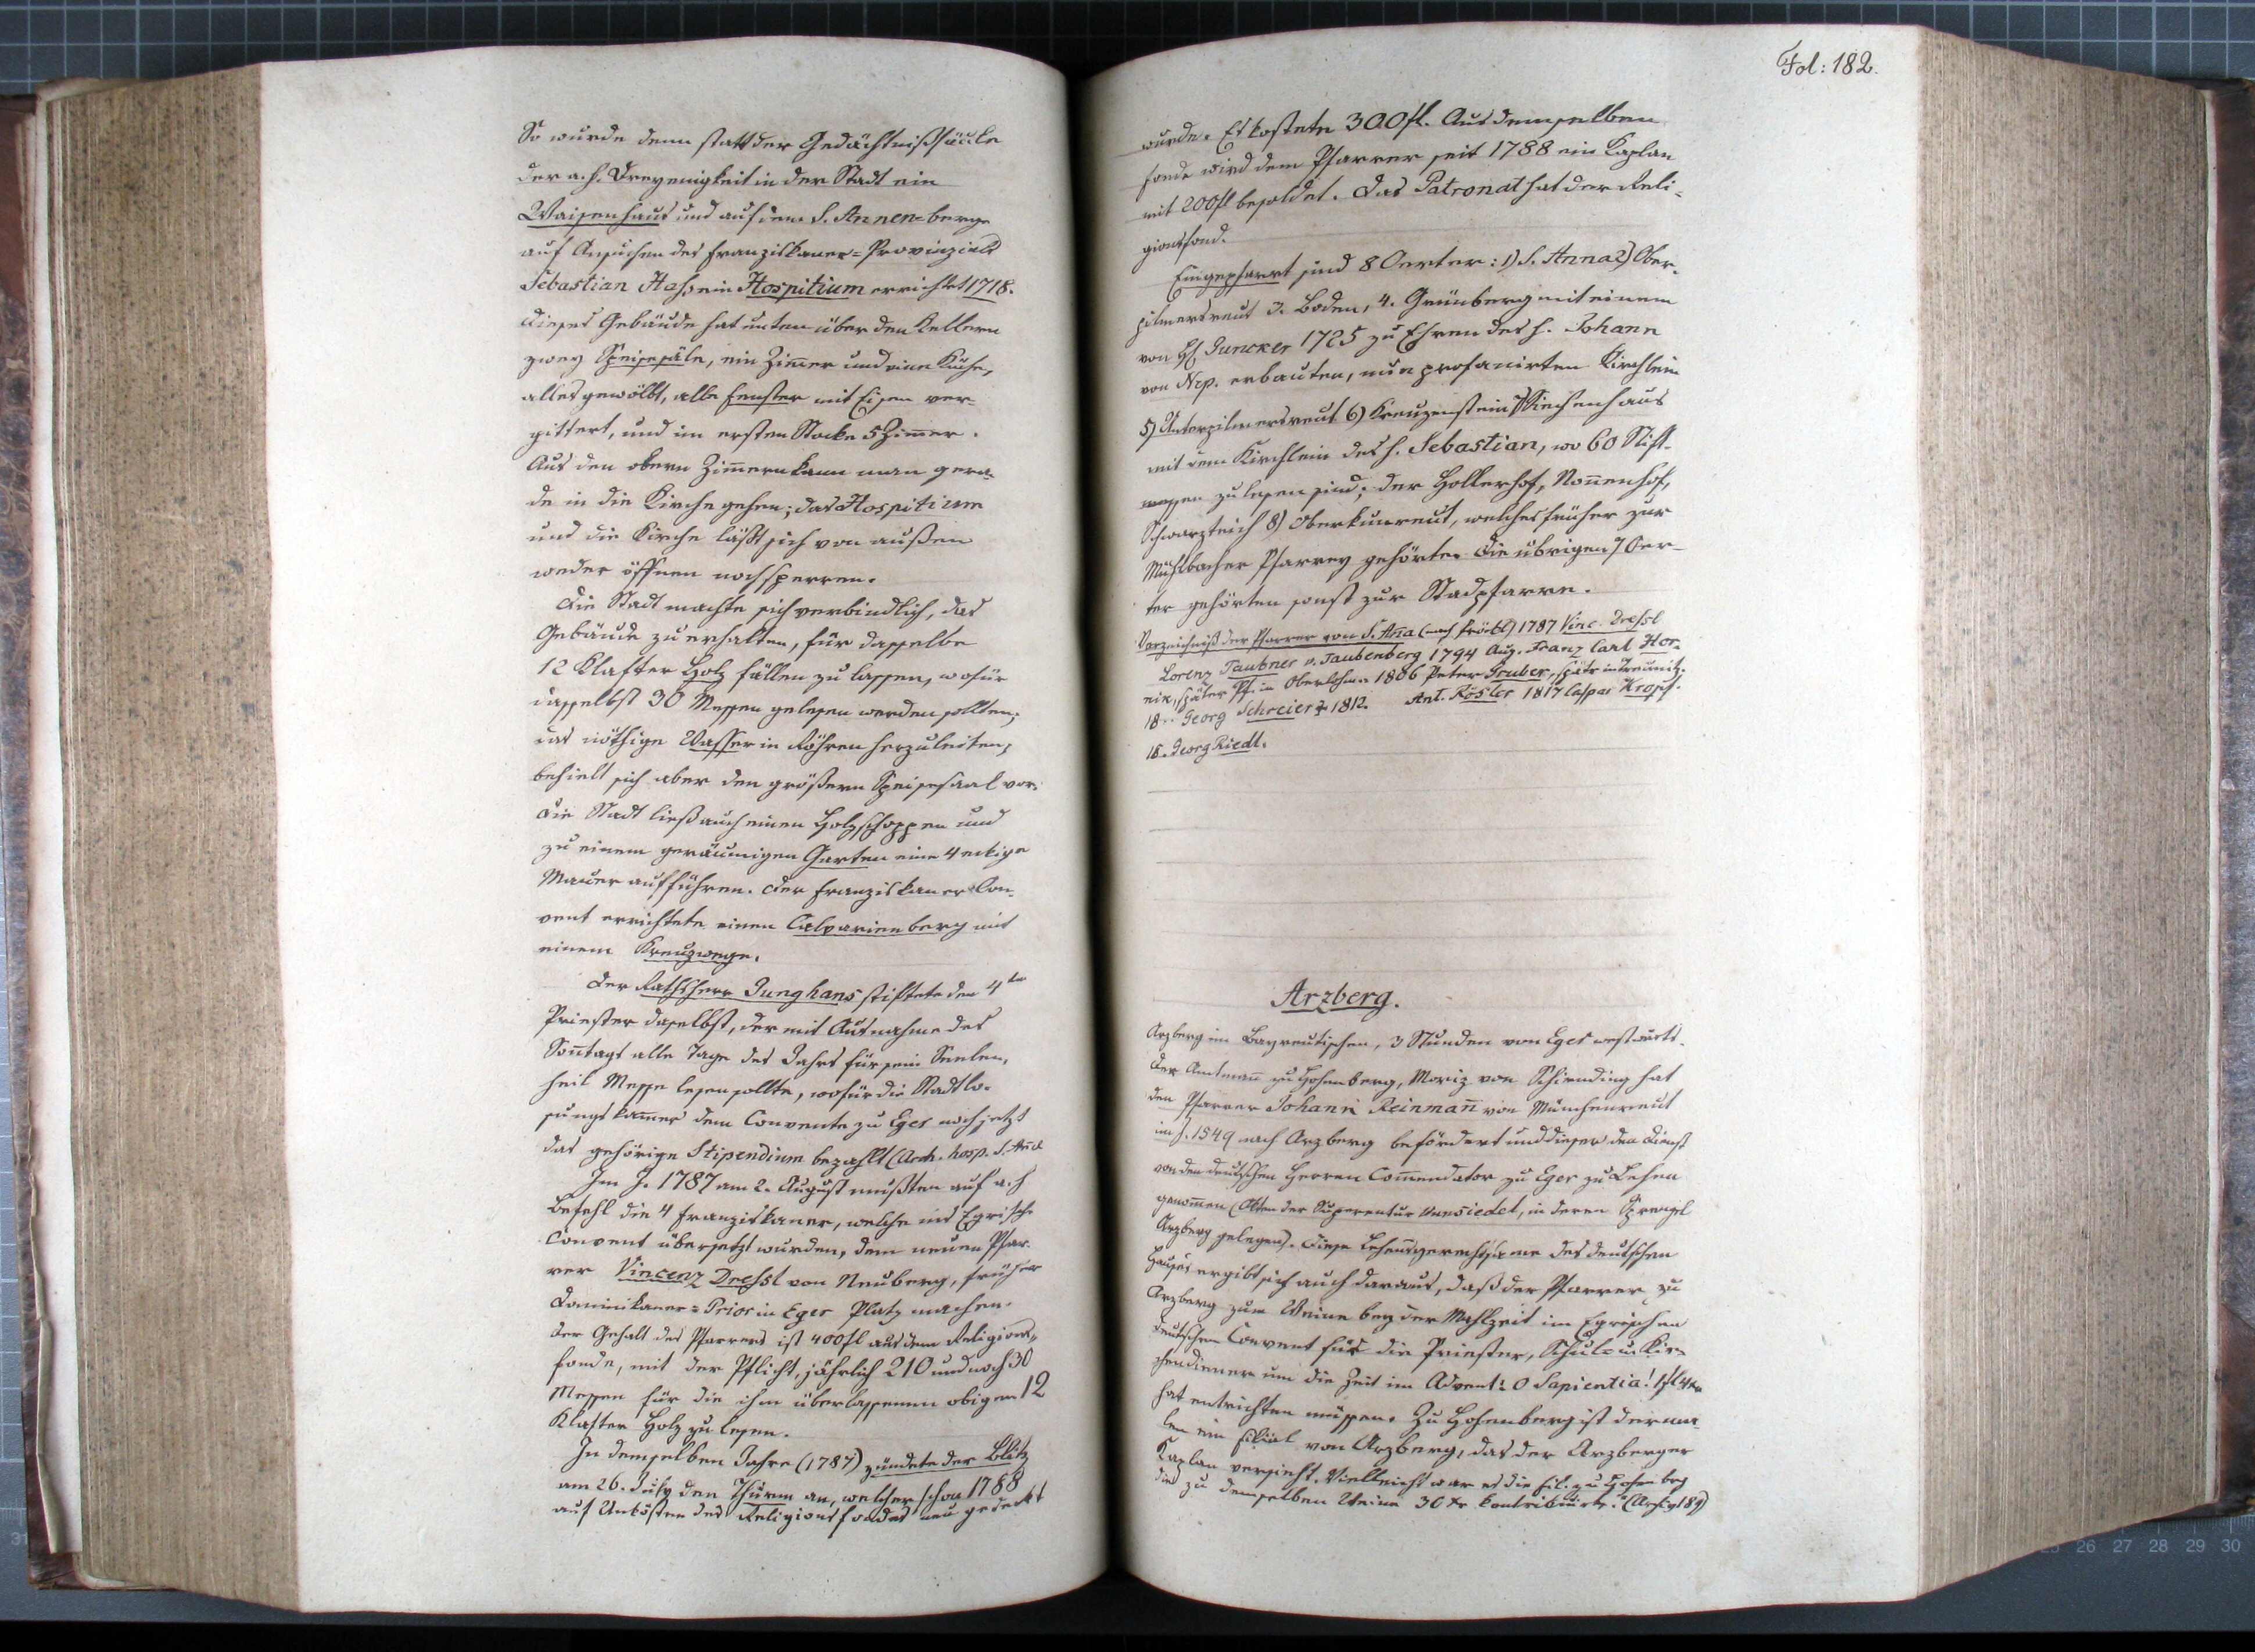 So wurde denn statt der Gedächtnißsäule
der a. h. Dreyenigkeit in der Stadt ein
Waisenhaus und auf dem S. Annen-berge
auf Ansuchen des Franziskaner-Provinzials
Sebastian Has, ein Hospitium errichtet 1718.
Dieses Gebäude hat unten über den Kellern
zwey Speisesäle, ein Zim̄er und eine Küche,
alles gewölbt, alle Fenster mit Eisen ver-
gittert, und im ersten Stocke 5 Zim̄er.
Aus den obern Zim̄ern kann man gera-
de in die Kirche gehen; das Hospitium
und die Kirche läßt sich von außen
weder öffnen noch sperren.
Die Stadt machte sich verbindlich, das
Gebäude zu erhalten, für dasselbe
12 Klafter Holz fällen zu lassen, wofür
daselbst 30 Messen gelesen werden sollten;
das nöthige Wasser in Röhren herzuleiten;
behielt sich aber den größern Speisesaal vor.
Die Stadt ließ auch einen Holzschoppen und
zu einem geräumigen Garten eine 4 eckige
Mauer aufführen. Der Franziskaner Con-
vent errichtete einen Calvarienberg mit
einem Kreuzwege.
Der Rathsherr Junghans stiftete den 4ten
Priester daselbst, der mit Ausnahme des
Son̄tags alle Tage des Jahrs für sein Seelen-
heil Messe lesen sollte, wofür die Stadtlo-
sungskam̄er dem Convente zu Eger noch jetzt
das gehörige Stipendium bezahlt (Arch. hosp. S. An̄a
Im J. 1787 am 2. August mußten auf a. h
Befehl die 4 Franziskaner, welche ins Egrische
Convent übersetzt wurden, dem neuen Pfar-
rer Vincenz Dressl von Neuberg, früher
Dominikaner-Prior in Eger Platz machen.
Der Gehalt des Pfarrers ist 400 fl aus dem Religions-
fonde, mit der Pflicht, jährlich 210 und noch 30
Messen für die ihm überlassenen obigen 12
Klafter Holz zu lesen.
In demselben Jahre (1787) zündete der Blitz
am 26. July den Thurm an, welcher schon 1788
auf Unkösten des Religionsfondes neu gedeckt
Fol: 182.
wurde. Es kostete 300 fl. Aus demselben
Fonde wird dem Pfarrer seit 1788 ein Kaplan
mit 200 fl besoldet. Das Patronat hat der Reli-
gionsfond.
Eingepfarrt sind 8 Oerter: 1) S. Anna 2) Ober-
pilmersreut 3. Boden, 4. Grünberg mit einem
von H. Juncker 1725 zu Ehren des h. Johann
von Nep. erbauten, nun profanirten Kirchlein
5) Unterpilmersreut 6) Kreuzenstein 7) Siechenhaus
mit dem Kirchlein des h. Sebastian, wo 60 Stift-
messen zu lesen sind; der Hollerhof, Non̄enhof,
Schwarzteich 8) Oberkunreut, welches früher zur
Mühlbacher Pfarrey gehörte. Die übrigen 7 Oer-
ter gehörten sonst zur Stadpfarre.
Verzeichniß der Pfarrer von S. An̄a (nach Pröckl) 1787 Vinc. Dressl
Lorenz Taubner v. Taubenberg 1794 Aug. Franz Carl Hor-
nik, später Pf. in Oberlohma 1806 Peter Gruber, später in Treunitz.
18.. Georg Schreier † 1812. Ant. Rösler 1817 Caspar Kropf.
18. Georg Riedl.
Arzberg.
Arzberg im Bayreutischen, 3 Stunden von Eger westwärts.
Der Amtman̄ zu Hohenberg, Moriz von Schirnding hat
den Pfarrer Johann Reinman̄ von Münchenreut
im J. 1549 nach Arzberg befördert und dieser den Dienst
von dem deutschen Herren Com̄endator zu Eger zu Lehen
genom̄en (Akten der Superentur Wunsiedel, in deren Sprengel
Arzberg gelegen). Diese Lehensgerechtsame des deutschen
Hauses ergibt sich auch daraus, daß der Pfarrer zu
Arzberg zum Weine bey der Mahlzeit im Egrischen
deutschen Convent für die Priester, Schul- u. Kir-
chendiener um die Zeit im Advent: O Sapientia! 1 fl 4 kr
hat entrichten müssen. Zu Hohenberg ist derma-
len ein Filial von Arzberg, das der Arzberger
Kaplan versieht. Vielleicht war es die Fil. zu Hohenberg
die zu demselben Weine 30 kr kontribuirte. (Arch. gl 89)